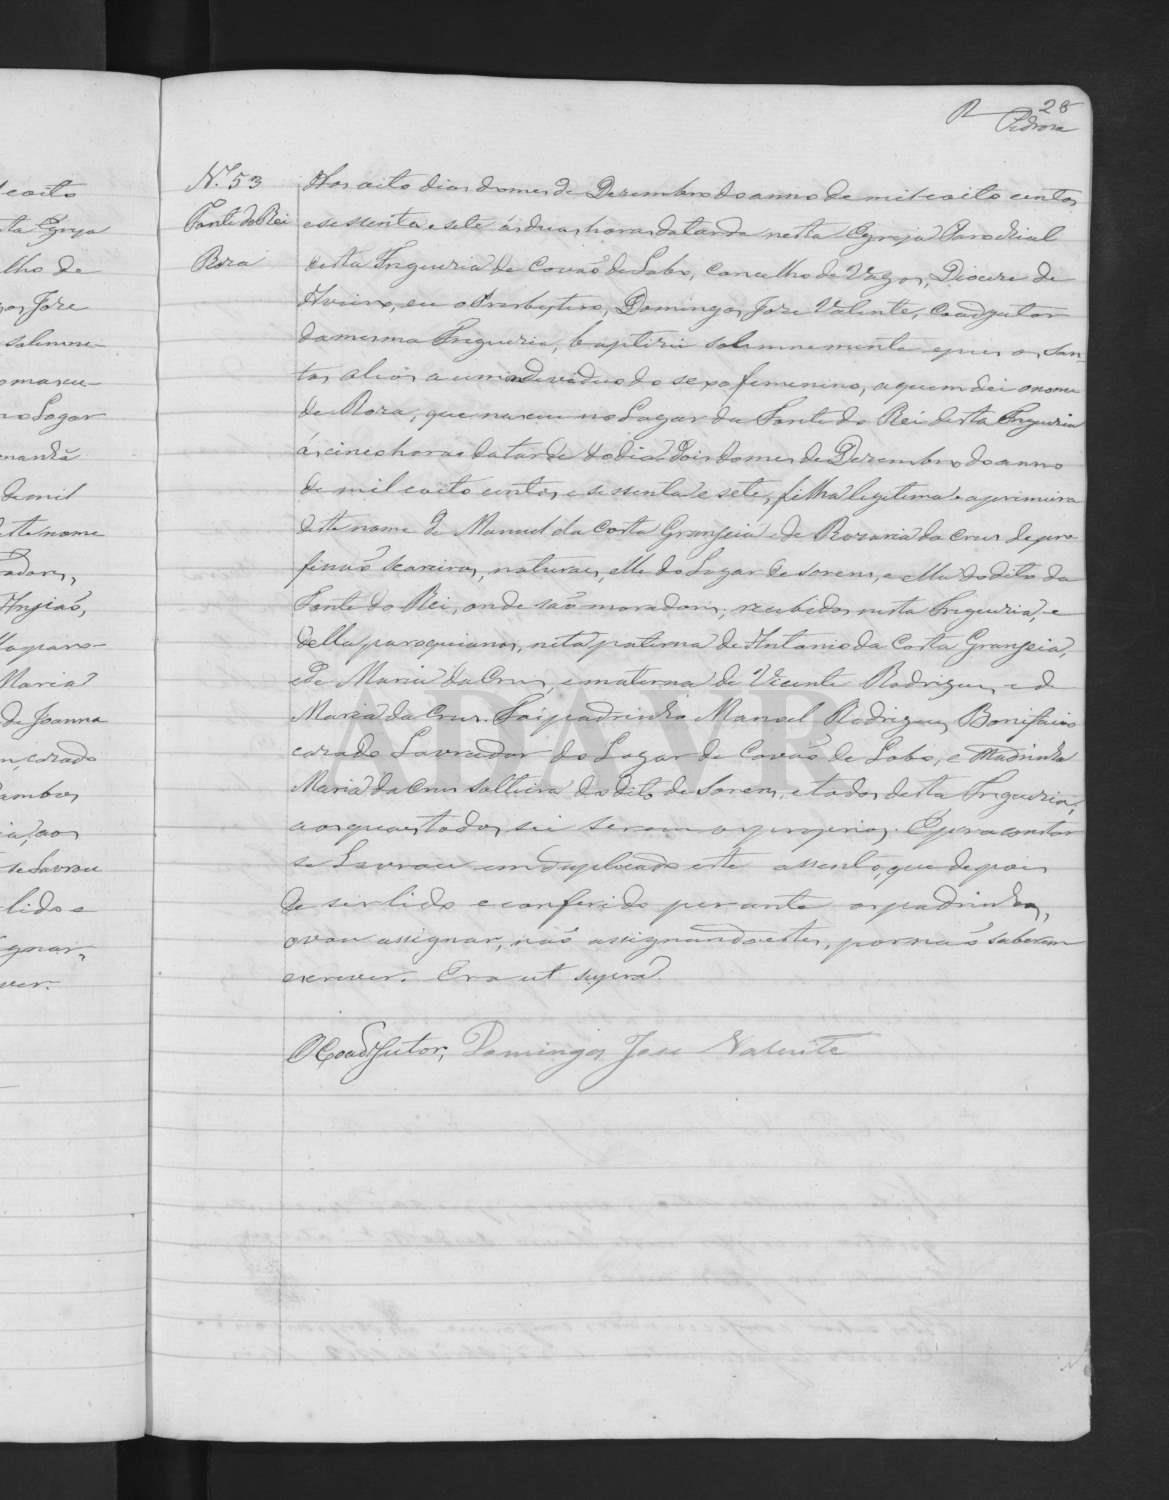 R 28
Pedrora
eoito
ta Egreja
lho de
os Jose
solemne-
o mascu-
no Logar
manhã
de mil
este nome
radores,
Angião,
Maria
de Joanna
casado
ia, aos
se Lavrou
lido e
ver.
N.º 53
Fonte do Rei
Roza
Aos oito dias do mes de Dezembro do anno de mil eoito centos
e sessenta e sete ás duas horas da tarde nesta Egreja Parochial
desta Freguezia de Covaõ de Lobo, Concelho de Vagos, Diocese de
Aveiro, eu o Presbytero, Domingos Jose Valente, Coadjutor
da mesma Freguezia, baptizei solemnemente e pus os San-
tos oleos a um individuo do sexo femenino, a quem dei o nome
de Roza, que nasceu no Lagar da Fonte do Rei desta Freguezia
ás cinco horas da tarde do dia Dois do mes de Dezembro do anno
de mil eoito centos e sessenta e sete, filha legitima e a primeira
deste nome de Manuel da Costa Grangeia e de Rozaria da Cruz de pro
fissaõ Seareiros, naturaes, elle do Lugar de Sorens, e ella do dito da
Fonte do Rei, onde saõ moradores, recebidos nesta Freguezia, e
della paroquianos, neta paterna de Antonio da Costa Grangeia,
e de Maria da Cruz, e materna de Vicente Rodrigues e de
Maria da Cruz. Foi padrinho Manoel Rodrigues Bonifacio
cazado Lavrador do Lugar de Covaõ de Lobo, e Madrinha
Maria da Cruz solteira do dito de Sorens, e todos desta Freguezia,
aos quaes todos sei serem os proprios. E para constar
se Lavrou em duplicado este assento, que depois
de ser lido e conferido perante os padrinhos,
o vou assignar, naõ assignando estes, por naõ saberem
escrever. Era ut supra.
O Coadjutor, Domingos Jose Valente
ADAVR